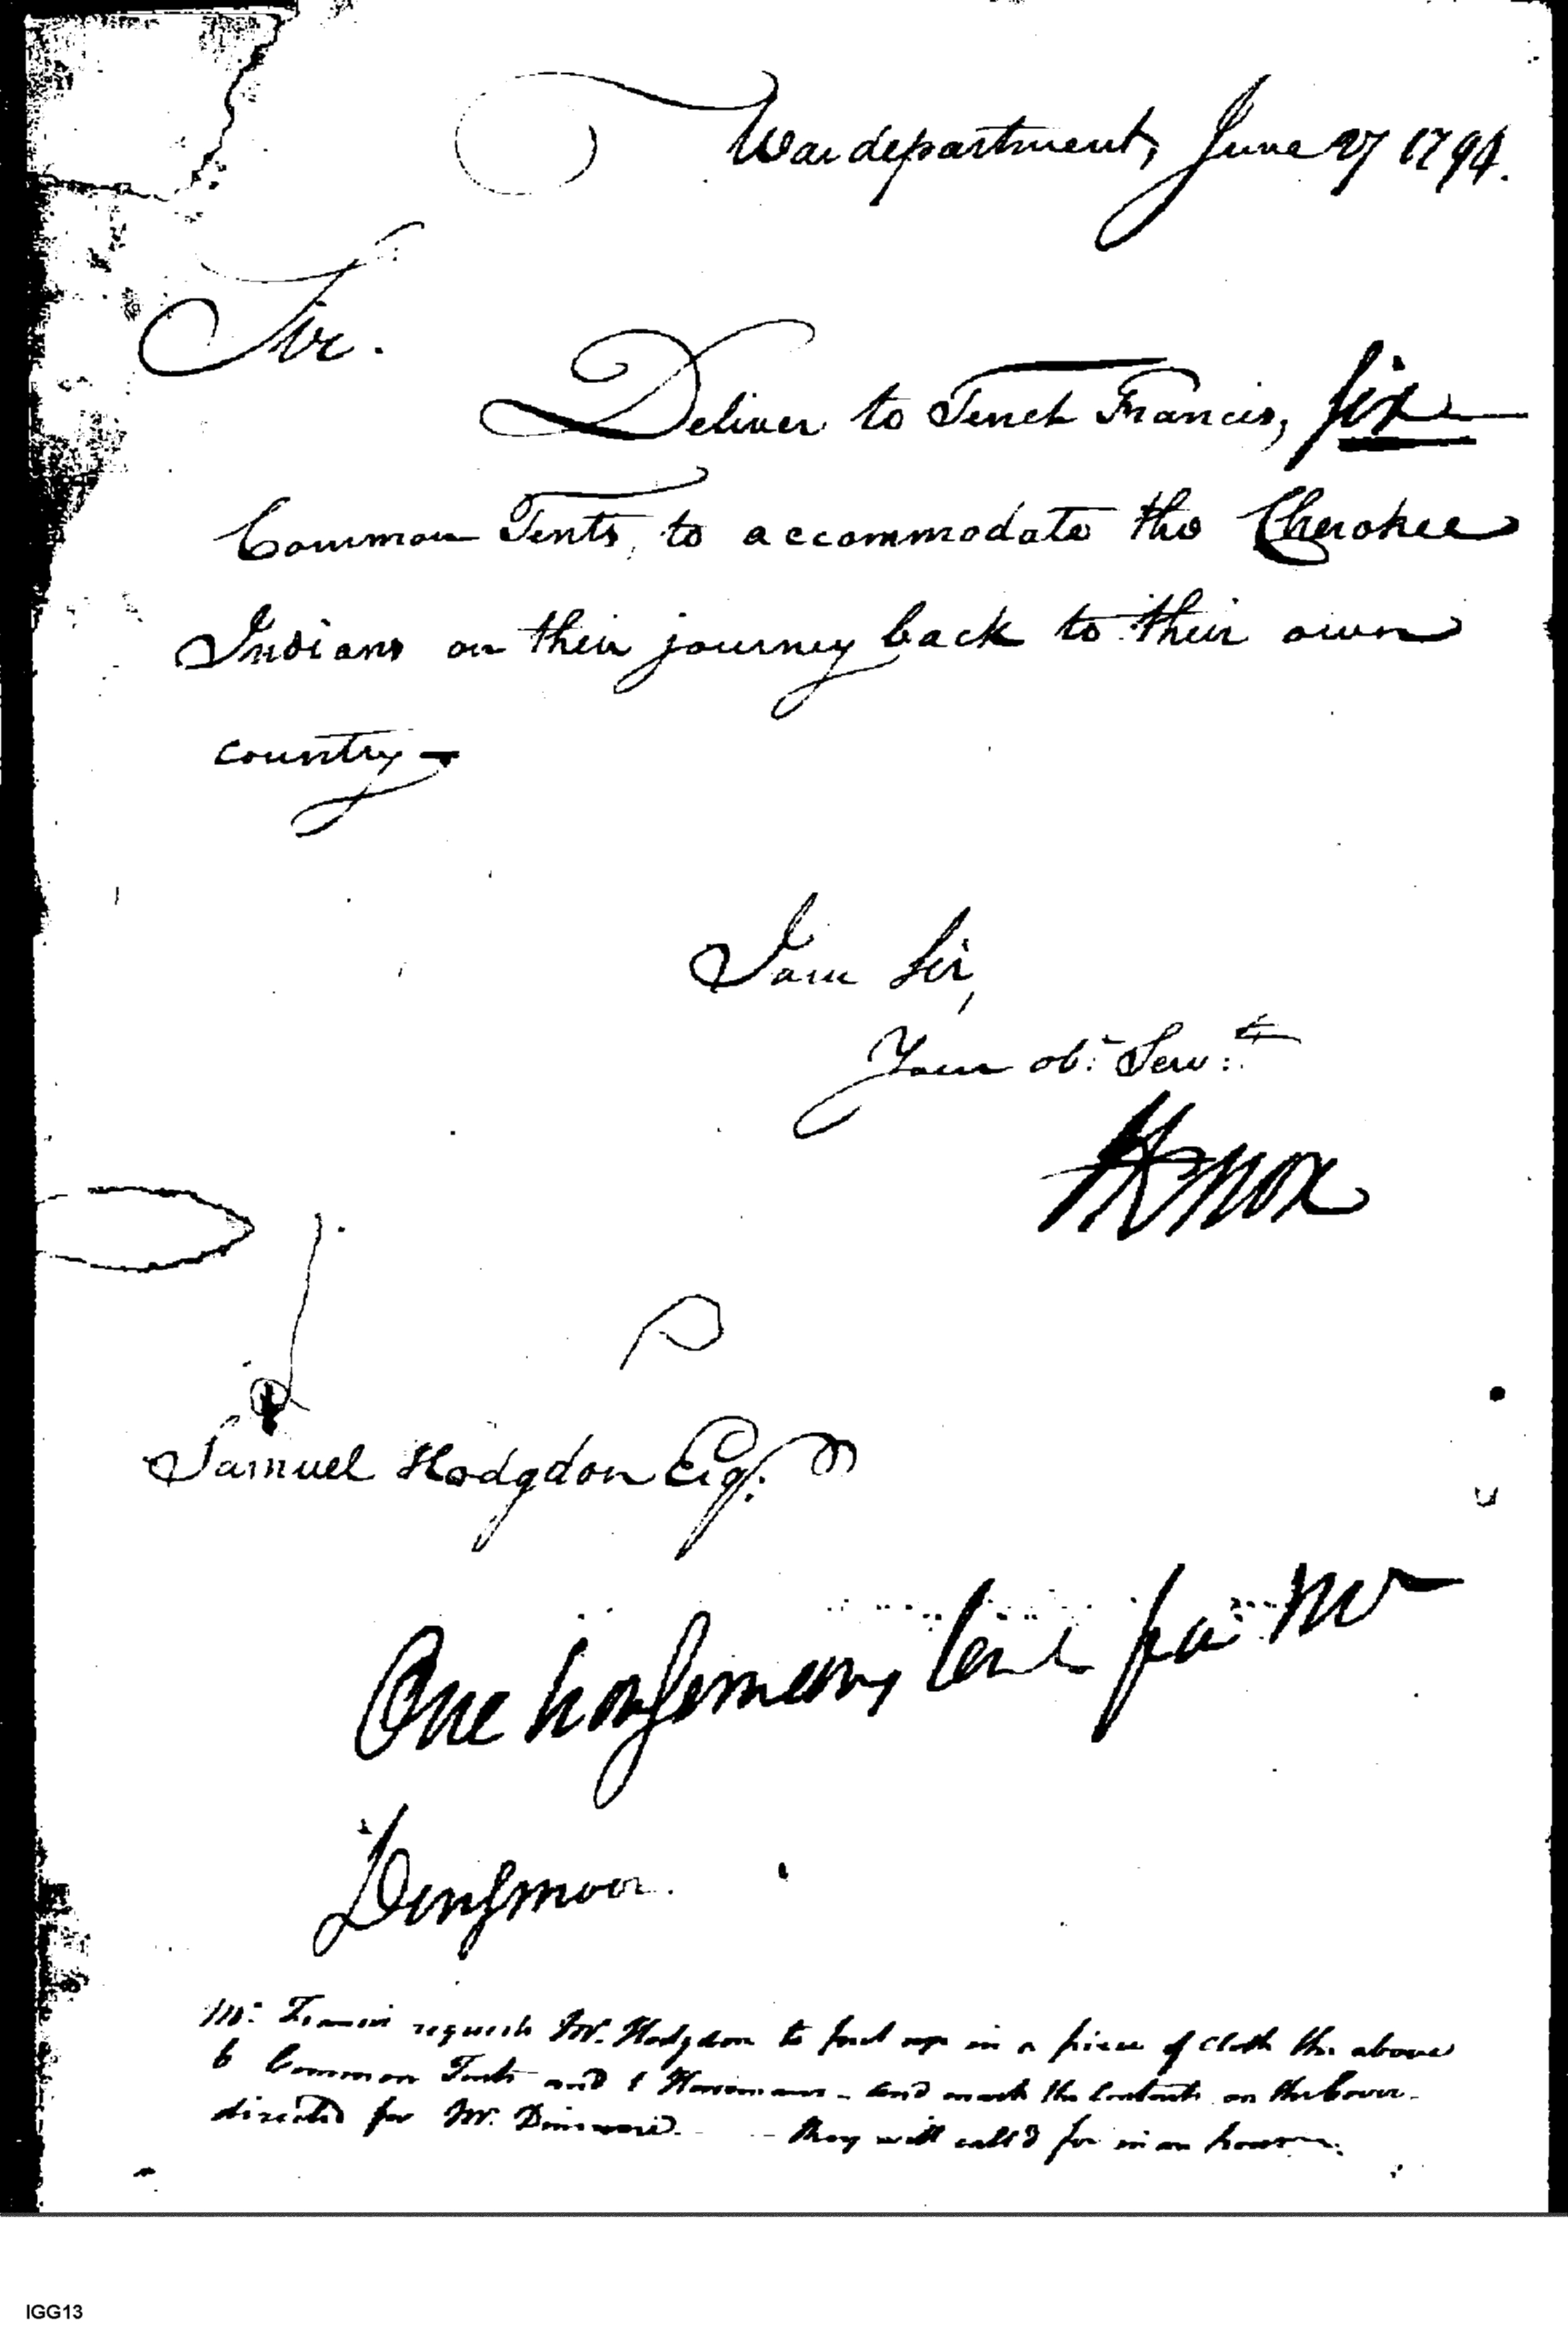 War department, June 27 1794.
Sir.
Deliver to Tench Francis, six
Common Tents, to accommodate the Cherokee
Indians on their journey back to their own
country —
I am Sir,
Your ob: Serv:t
HKnox
Samuel Hodgdon Esq:
One horsemans tent for Mr
Dinsmoor.
Mr. Francis requests Mr. Hodgdon to put up in a piece of cloth the above
6 Common Tents and 1 Horsemans - and mark the Contents on the Cover -
directed for Mr. Dinsmore. - they will call'd for in an hour
IGG13